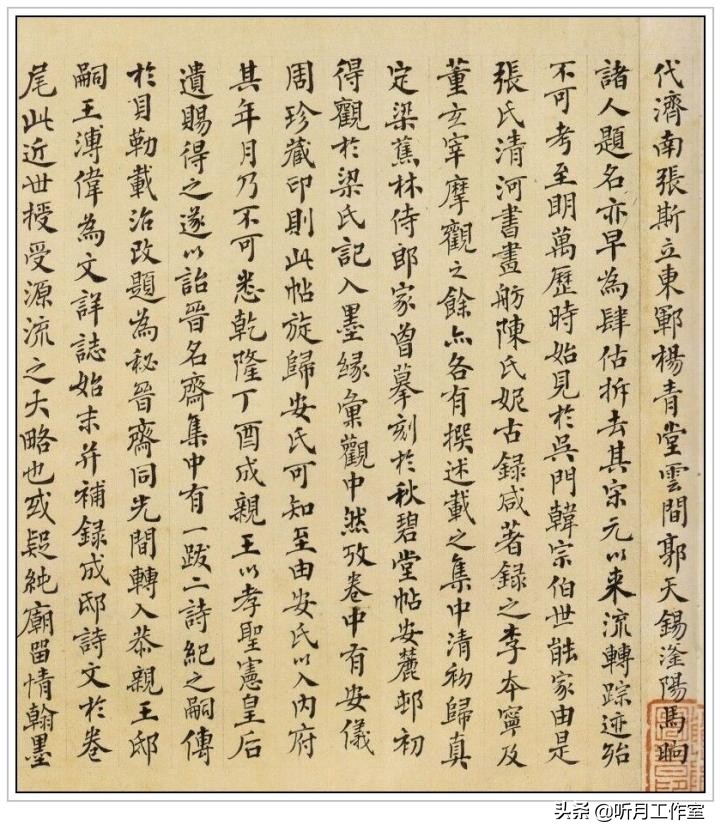 代濟南張斯立東鄆楊青堂雲間郭天錫滏陽馬晌
諸人題名亦早為肆估拆去其宋元以来流轉踪迹殆
不可考至明萬歷時始見於吳門韓宗伯世能家由是
張氏清河書畫舫陳氏妮古録咸著録之李本寧及
董玄宰摩觀之餘亦各有撰述載之集中清初歸真
定梁蕉林侍郎家曾摹刻於秋碧堂帖安麓邨初
得觀於梁氏記入墨緣彙觀中然攷卷中有安儀
周珍藏印則此帖旋歸安氏可知至由安氏以入内府
其年月乃不可悉乾隆丁酉成親王以孝聖憲皇后
遺賜得之遂以詒晉名齋集中有一跋二詩紀之嗣傳
於貝勒載治改題為秘晉齋同光間轉入恭親王邸
嗣王溥偉為文詳誌始末并補録成邸詩文於卷
尾此近世授受源流之大略也或疑純廟留情翰墨
头条 @听月工作室